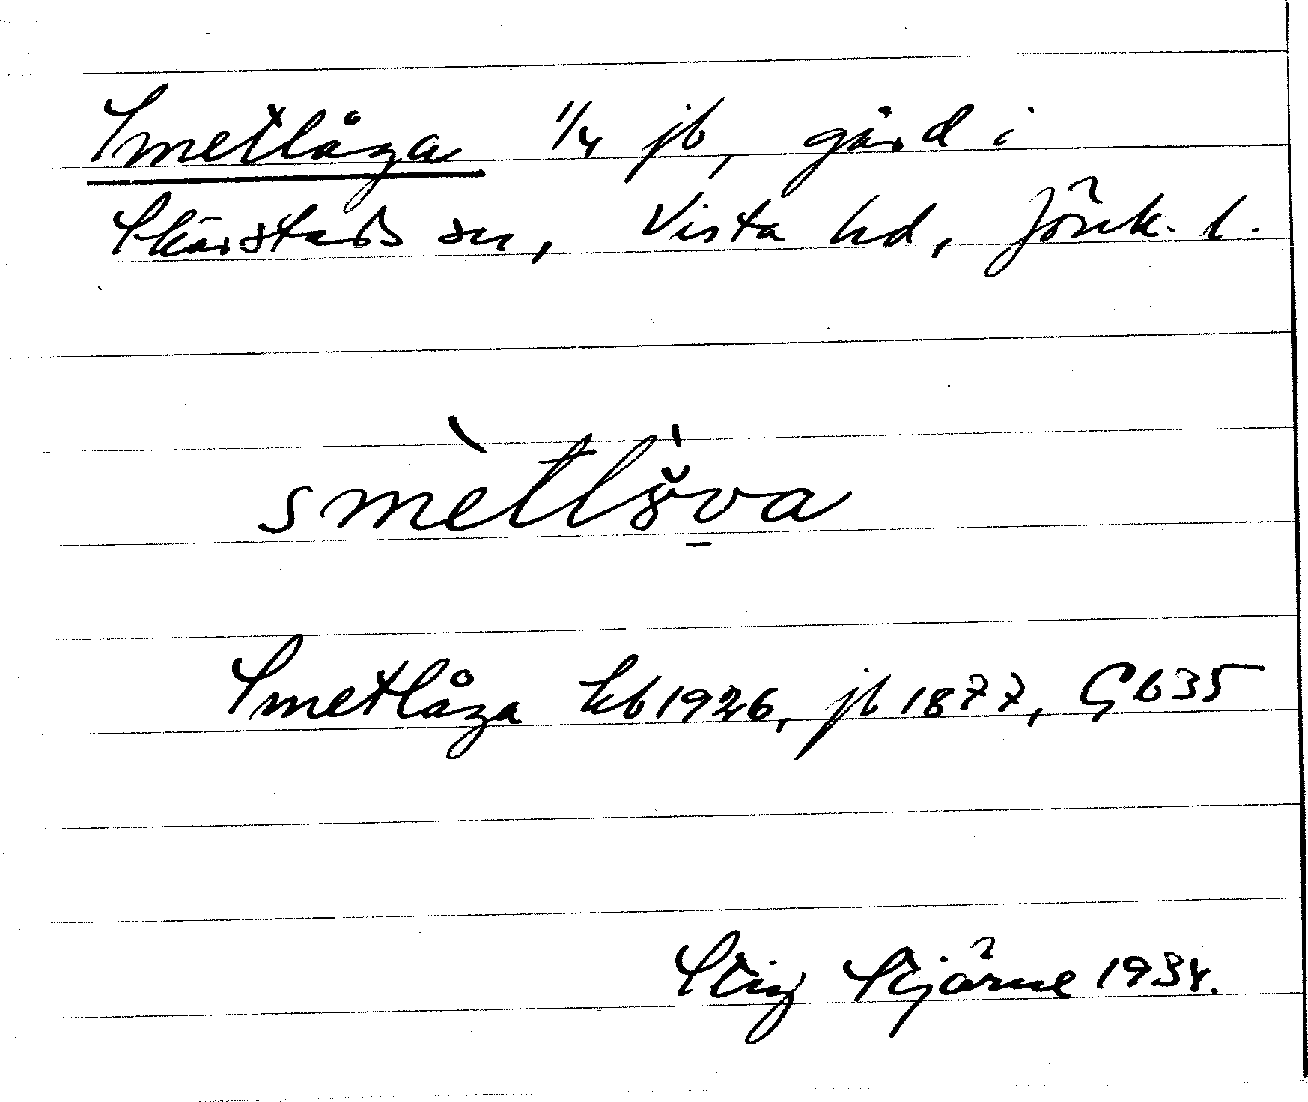 Smetlåga 1/4 jb, gård i
Skärstads sn, Vista hd, Jönk. l.
Smetlåga kb 1926, jb 1877, Gb 35
Stig Stjärne 1934.